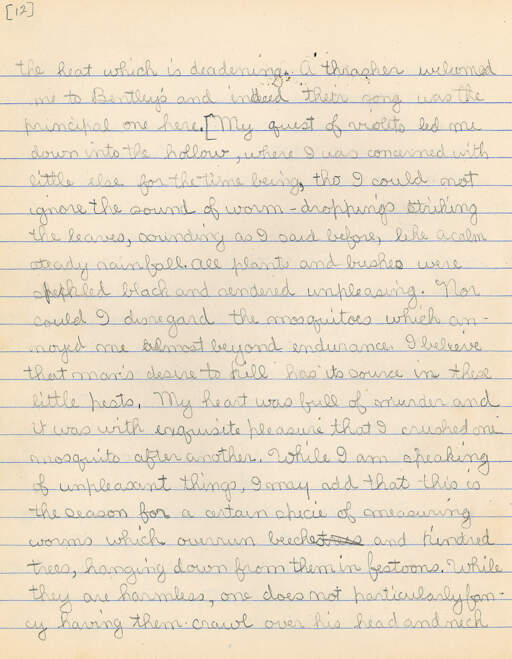 [12]
the heat which is deadening. A thrasher welcomed
me to Bentley's and indeed their song was the
principal one here. [My quest of violets led me
down into the hollow, where I was concerned with
little else for the time being, tho I could not
ignore the sound of worm-droppings striking
the leaves, sounding as I said before, like a calm
steady rainfall. All plants and bushes were
speckled black and rendered unpleasing. Nor
could I disregard the mosquitoes which an-
noyed me almost beyond endurance. I believe
that man's desire to kill has its source in these
little pests. My heart was full of murder and
it was with exquisite pleasure that I crushed one
mosquito after another. While I am speaking
of unpleasant things, I may add that this is
the season for a certain specie of measuring
worms which overrun beeches and kindred
trees, hanging down from them in festoons. While
they are harmless, one does not particularly fan-
cy having them crawl over his head and neck